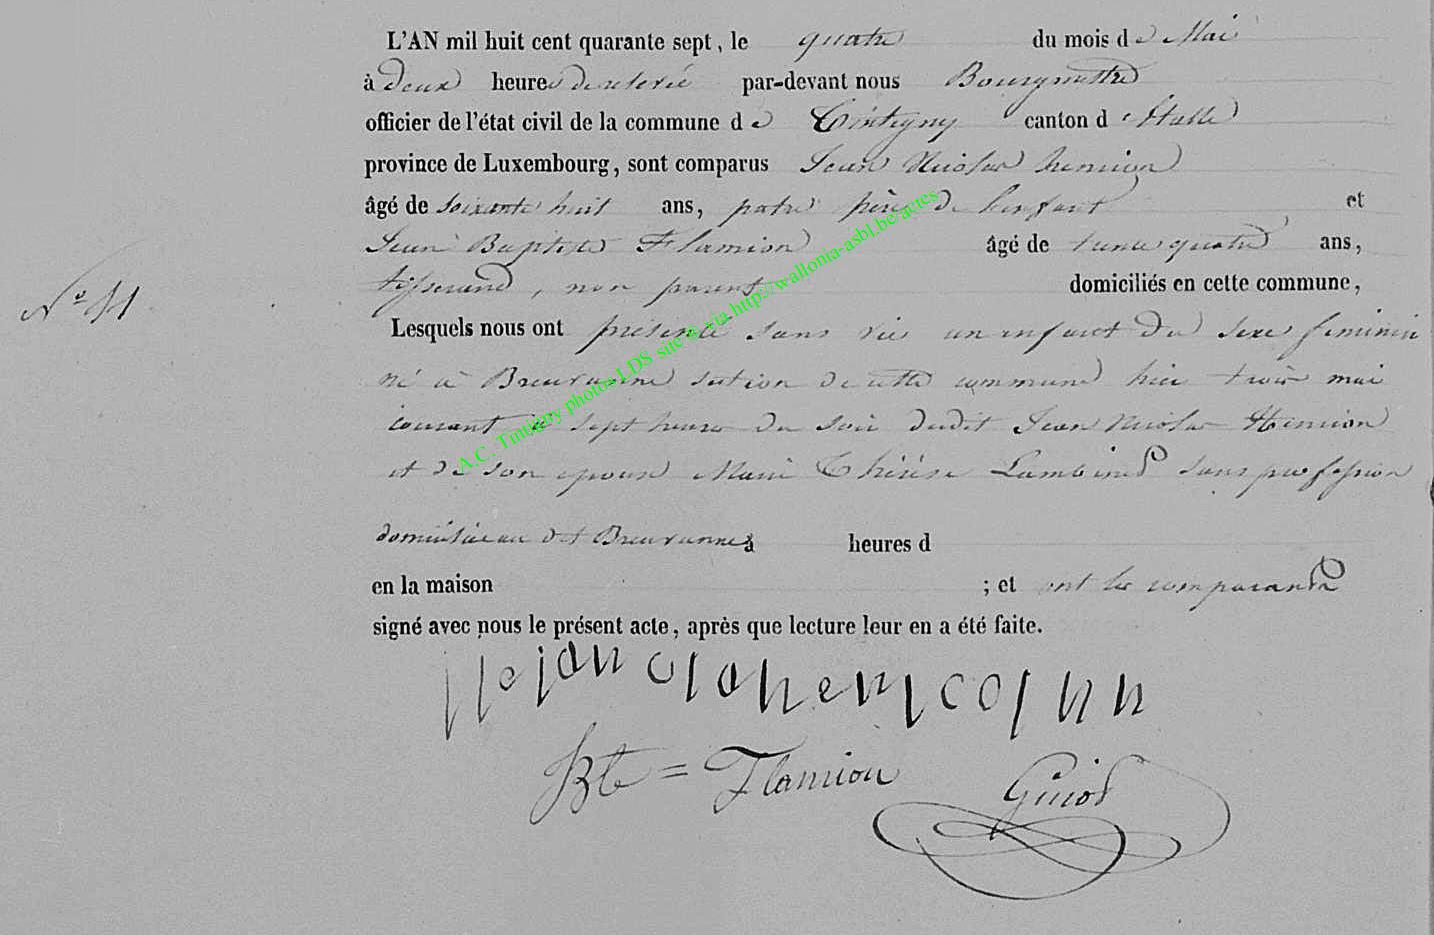 L'AN mil huit cent quarante sept, le quatre du mois de Mai
à deux heures de relevée par-devant nous Bourgmestre
officier de l'état civil de la commune de Tintigny canton d'Etalle
province de Luxembourg, sont comparus Jean Nicolas hemion
âgé de soixante huit ans, patre père de l'enfant et
Jean Baptiste Flamion âgé de trente quatre ans,
tisserand, non parent domiciliés en cette commune,
N°
Lesquels nous ont présenté sans vie un enfant du sexe feminin
né à Breuvanne section de cette commune hier trois mai
courant à sept heures du soir dudit Jean Nicolas Hemion
et de son epouse Marie Thérèse Lambinet sans profession
domiciliée au dit Breuvanne à heures d
en la maison ; et ont les comparants
signé avec nous le présent acte, après que lecture leur en a été faite.
Bte = Flamion Guiot
A.C. Tintigny photos LDS site © via http://wallonia-asbl.be/actes